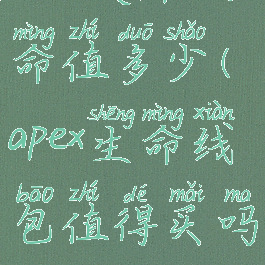 mìng zhí duō shǎo
命值多少(
shēng mìng xiàn
apex生命线
bāo zhí dé mǎi ma
包值得买吗